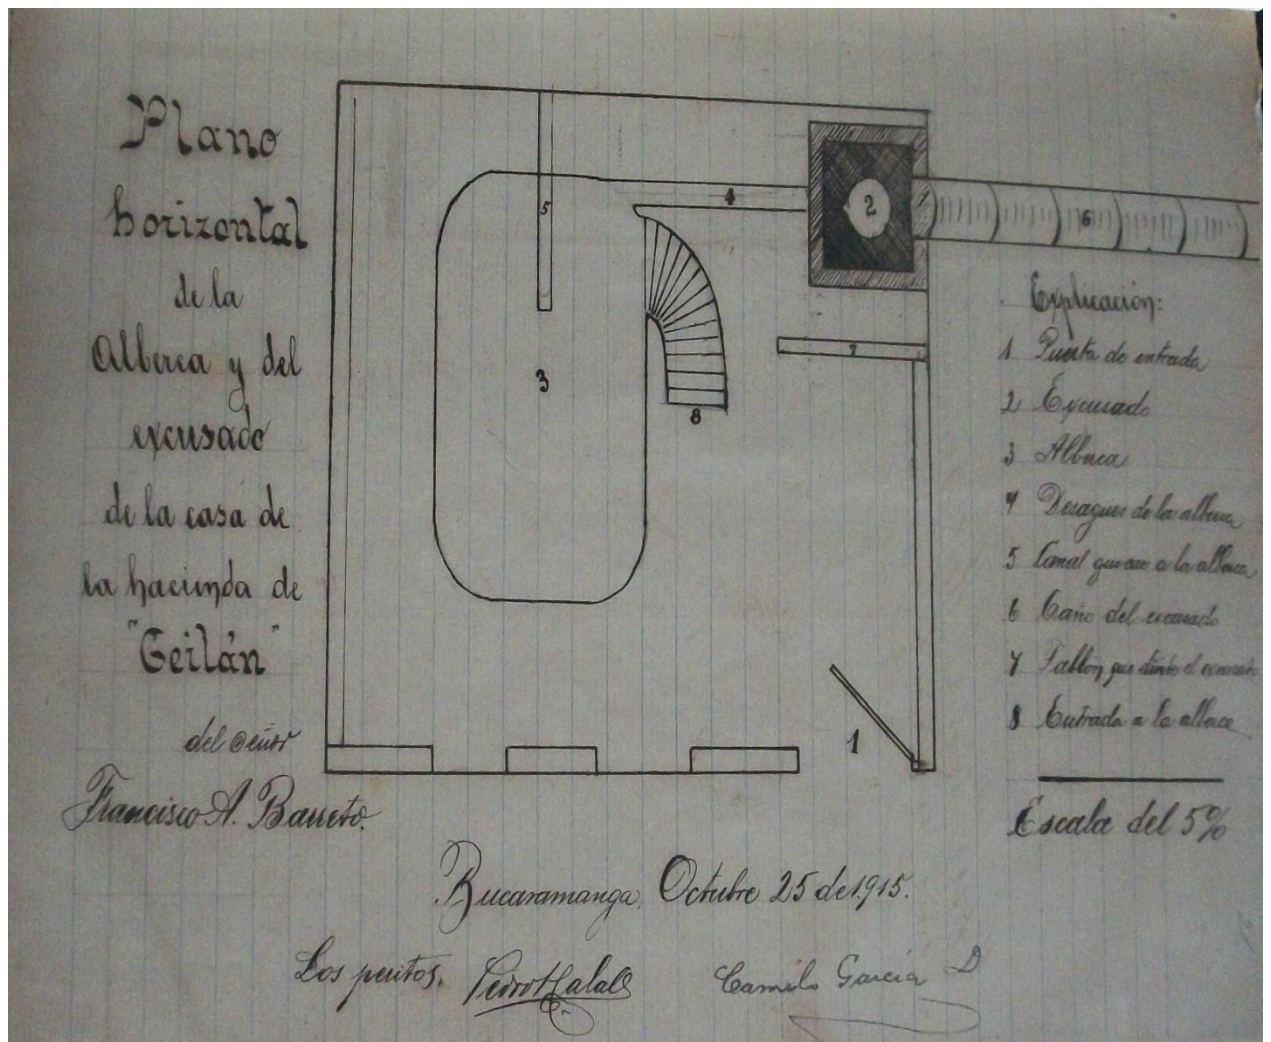 Plano
horizontal
de la
Alberca y del
excusado
de la casa de
la hacienda de
"Geilán"
del Señor
Francisco A. Barreto.
5
4
2
6
3
7
8
1
Explicación:
1 Puerta de entrada
2 Excusado
3 Alberca
4 Desagües de la alberca
5 Canal que cae a la alberca
6 Caño del excusado
7 que el excusado
8 Entrada a la alberca
Escala del 5%
Bucaramanga, Octubre 25 de 1.915.
Los peritos,
Pedro
Camilo García D